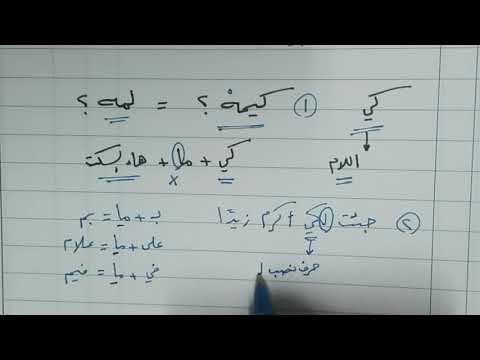 كي ① كيمهْ ؟ = لمه ؟
اللام كي + ما + هاء السكت
×
② جئت لكي أكرم زيدًا
بـ + ما = بم
على + ما = علام
في + ما = فيم
حرف نصب